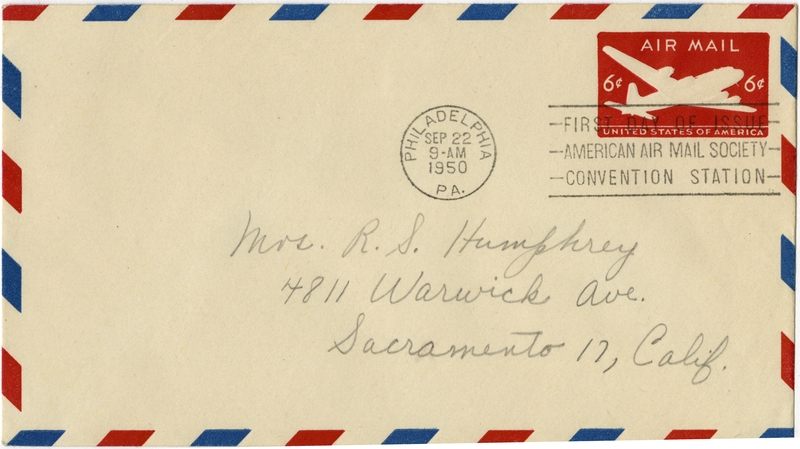 AIR MAIL
6¢ 6¢
UNITED STATES OF AMERICA
PHILADELPHIA
SEP 22
9-AM
1950
PA.
FIRST DAY OF ISSUE
AMERICAN AIR MAIL SOCIETY
CONVENTION STATION
Mrs. R. S. Humphrey
4811 Warwick Ave.
Sacramento 17, Calif.